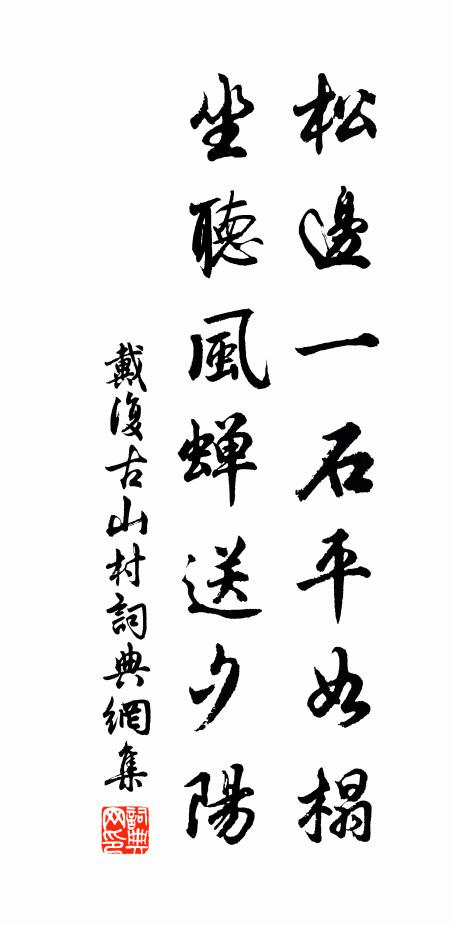 松邊一石平如榻
坐聽風蝉送夕陽
戴復古山村詞典網集
詞典网印